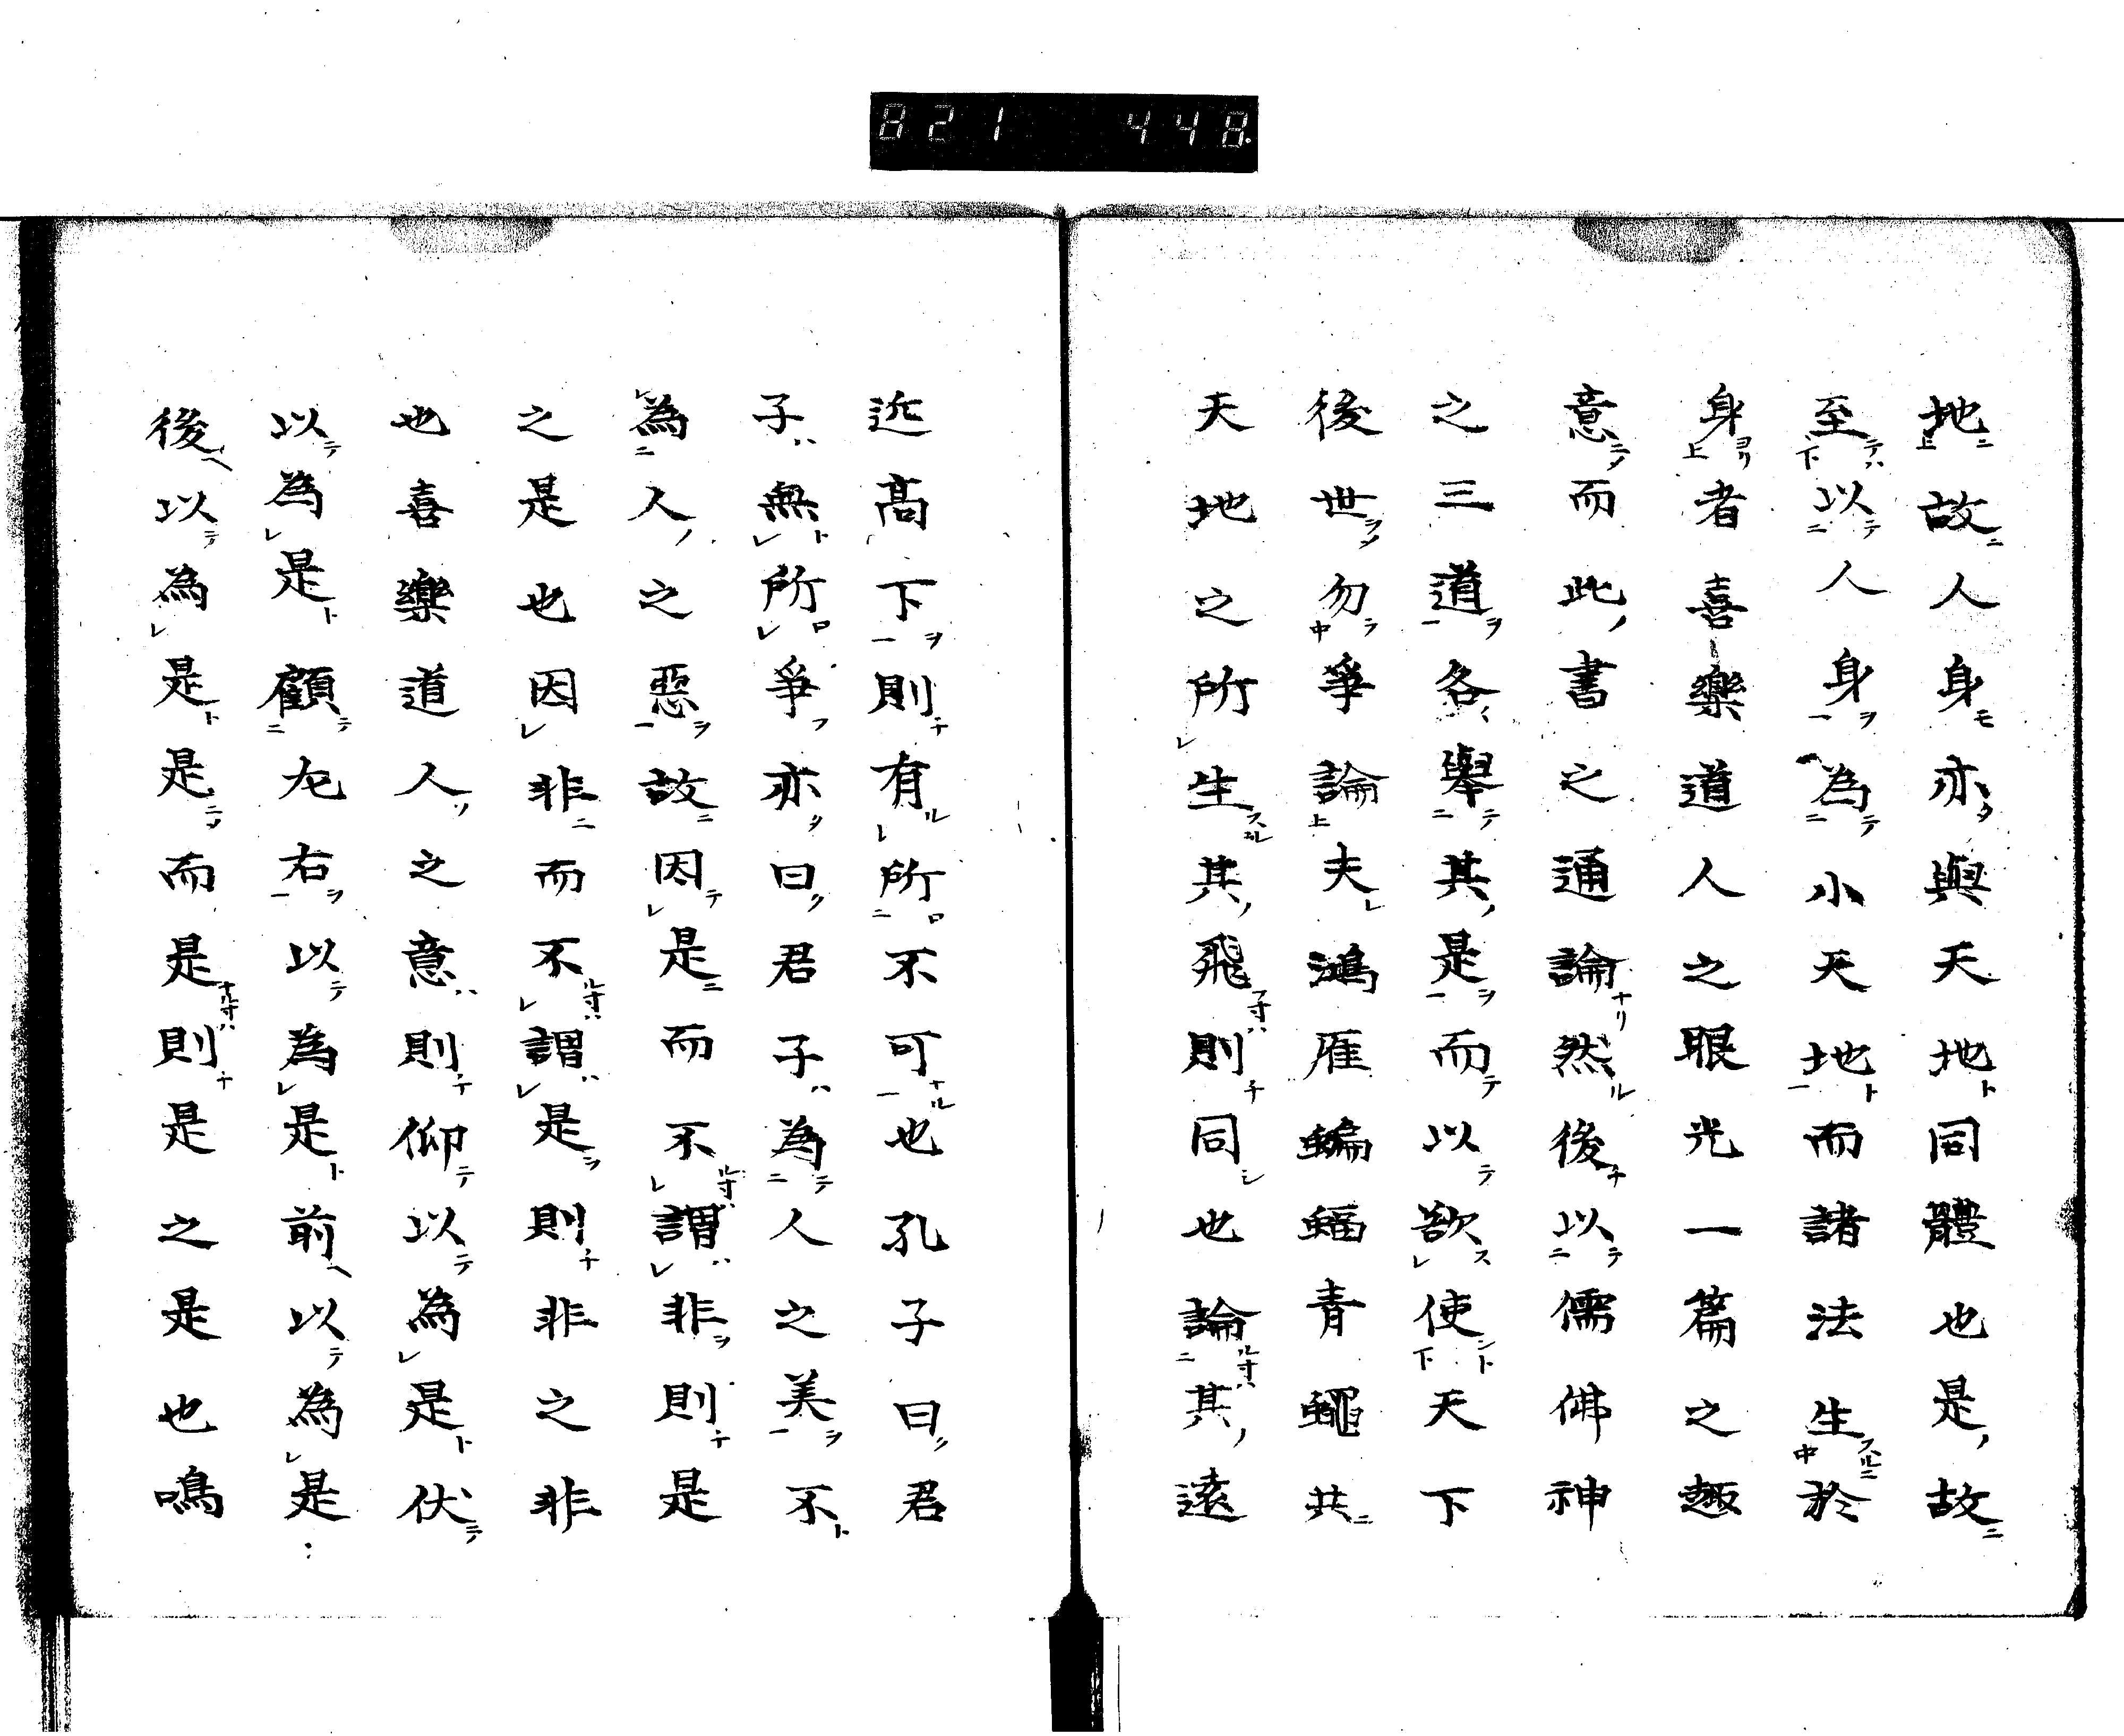 821 448.
地故人身亦與天地同體也是故
至以人身為小天地而諸法生於
身者喜樂道人之眼光一篇之趣
意而此書之通論然後以儒佛神
之三道各舉其是而以欲使天下
後世勿爭論夫鴻雁蝙蝠青蠅共
天地之所生其飛則同也論其遠
近高下則有所不可也孔子曰君
子無所爭亦曰君子為人之美不
為人之惡故因是而不謂非則是
之是也因非而不謂是則非之非
也喜樂道人之意則仰以為是伏
以為是顧左右以為是前以為是
後以為是是而是則是之是也鳴